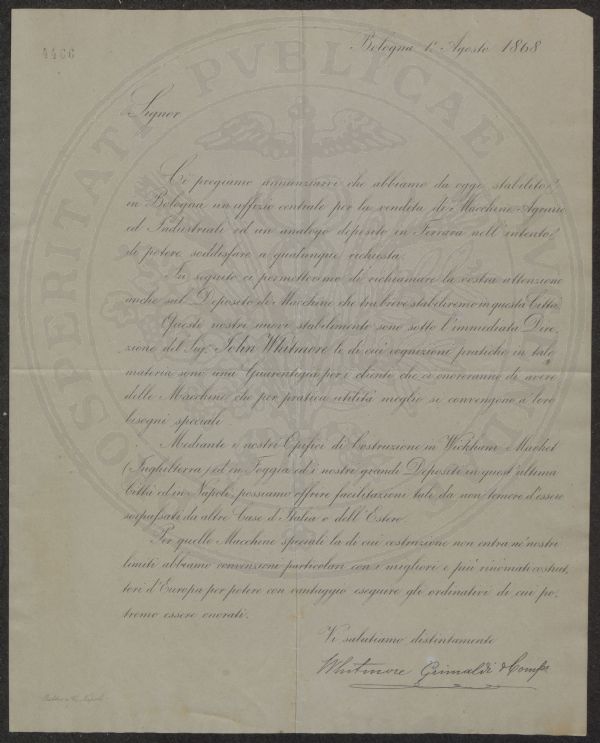 4466
Bologna 1º Agosto 1868
Signor
Ci pregiamo annunziarvi che abbiamo da oggi stabilito
in Bologna un uffizio centrale per la vendita di Macchine Agrarie
ed Industriali ed un analogo deposito in Ferrara nell'intento
di potere soddisfare a qualunque richiesta.
In seguito ci permetteremo di richiamare la vostra attenzione
anche sul Deposito di Macchine che tra breve stabiliremo in questa Città.
Questi nostri nuovi stabilimento sono sotto l'immediata Dire-
zione del Sig. John Whitmore le di cui cognizioni pratiche in tale
materia sono una Guarentigia per i clienti che ci onoreranno di avere
delle Macchine che per pratica utilità meglio si convengono a' loro
bisogni speciali.
Mediante i nostri Opifici di Costruzione in Wickham Market
(Inghilterra) ed in Foggia ed i nostri grandi Depositi in quest'ultima
Città ed in Napoli, possiamo offrire facilitazioni tali da non temere d'essere
sorpassati da altre Case d'Italia o dell'Estero.
Per quelle Macchine speciali la di cui costruzione non entra ne' nostri
limiti abbiamo convenzioni particolari con i migliori e più rinomati costrut-
tori d'Europa per potere con vantaggio eseguire gli ordinativi di cui po-
tremo essere onorati.
Vi salutiamo distintamente
Whitmore Grimaldi & Comp.
PROSPERITATI PVBLICAE